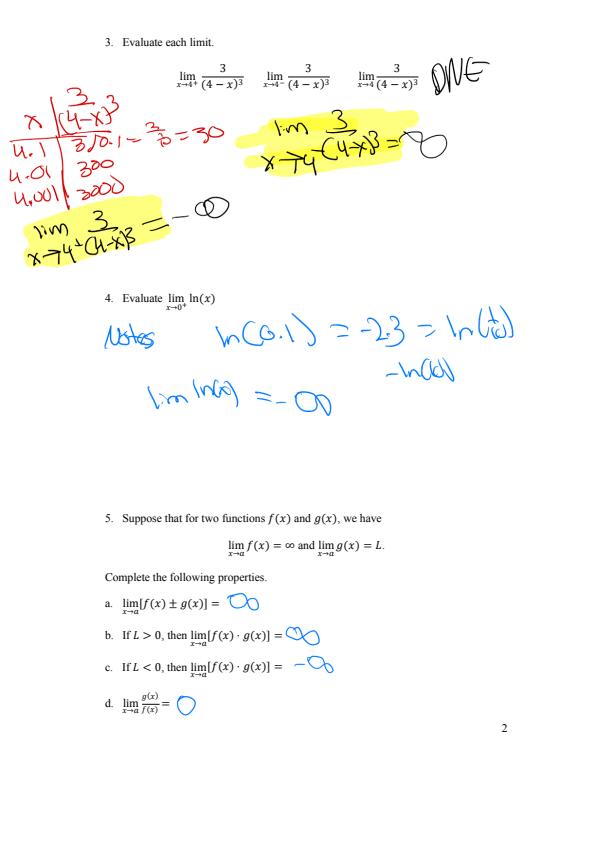 3. Evaluate each limit.
lim x→4⁺ 3/(4 − x)³ lim x→4⁻ 3/(4 − x)³ lim x→4 3/(4 − x)³ DNE
x | 3/(4-x)³
4.1 | 3/0.1 = 3/.1 = 30
4.01 | 300
4.001 | 3000
lim x→4⁻ 3/(4-x)³ = ∞
lim x→4⁺ 3/(4-x)³ = -∞
4. Evaluate lim x→0⁺ ln(x)
Notes ln(0.1) = -2.3 = ln(1/10)
-ln(10)
lim ln(x) = -∞
5. Suppose that for two functions f(x) and g(x), we have
lim x→a f(x) = ∞ and lim x→a g(x) = L.
Complete the following properties.
a. lim x→a [f(x) ± g(x)] = ∞
b. If L > 0, then lim x→a [f(x) · g(x)] = ∞
c. If L < 0, then lim x→a [f(x) · g(x)] = -∞
d. lim x→a g(x)/f(x) = 0
2